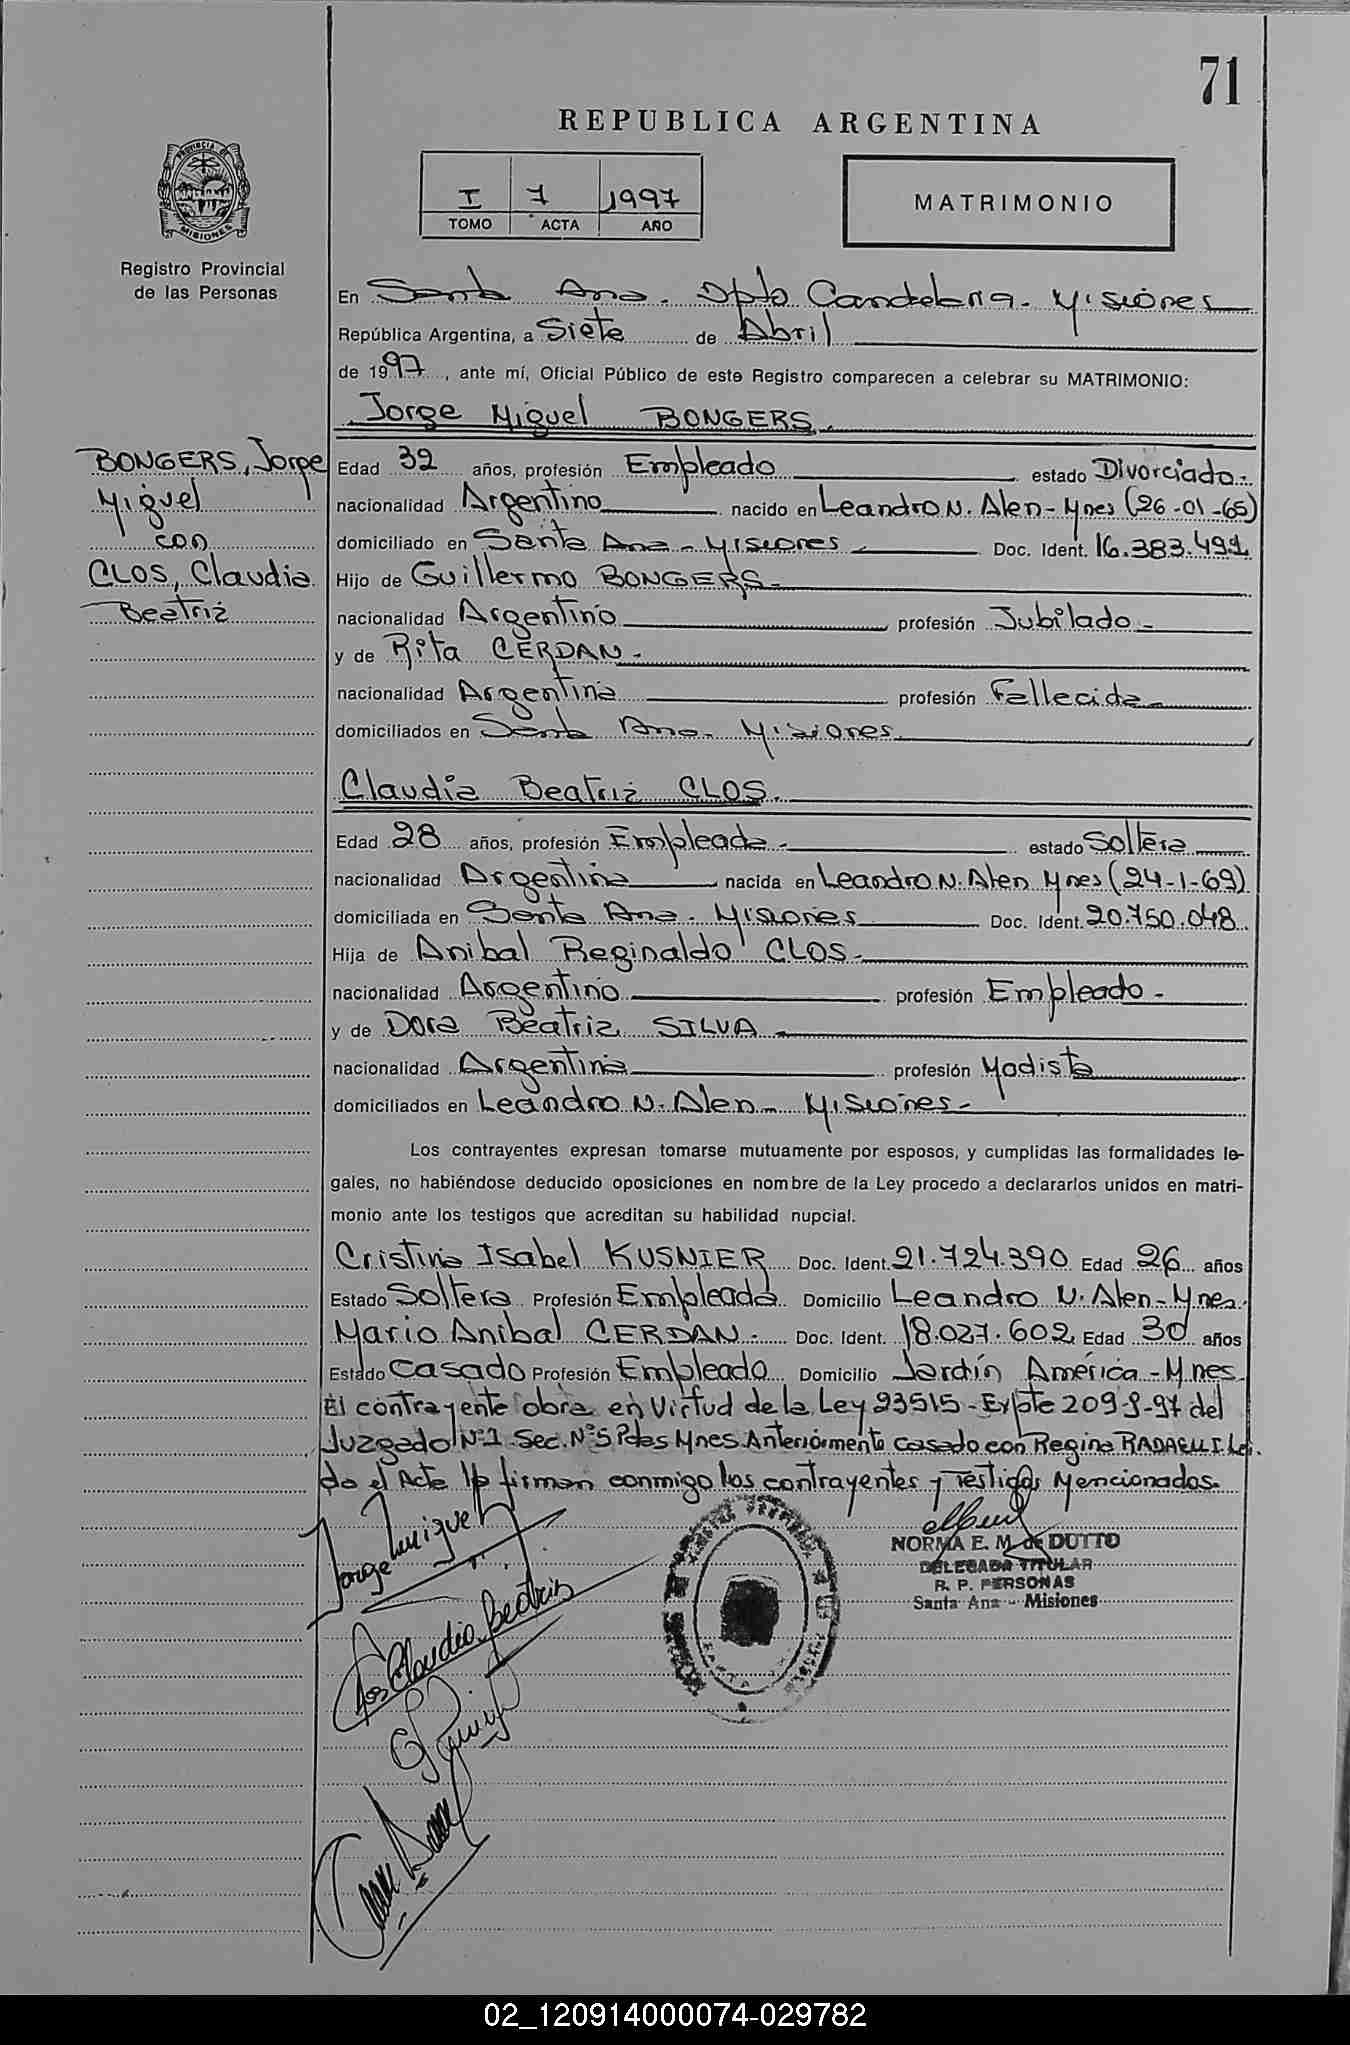 71
REPUBLICA ARGENTINA
I 7 1997
TOMO ACTA AÑO
MATRIMONIO
PROVINCIA DE
MISIONES
Registro Provincial
de las Personas
BONGERS, Jorge
Miguel
con
CLOS, Claudia
Beatriz
En Santa Ana. Dpto Candelaria. Misiones
República Argentina, a Siete de Abril
de 1997, ante mí, Oficial Público de este Registro comparecen a celebrar su MATRIMONIO:
Jorge Miguel BONGERS.
Edad 32 años, profesión Empleado estado Divorciado.
nacionalidad Argentino nacido en Leandro N. Alen-Mnes (26-01-65)
domiciliado en Santa Ana - Misiones Doc. Ident. 16.383.491
Hijo de Guillermo BONGERS.
nacionalidad Argentino profesión Jubilado -
y de Rita CERDAN.
nacionalidad Argentina profesión Fallecida
domiciliados en Santa Ana. Misiones.
Claudia Beatriz CLOS.
Edad 28 años, profesión Empleada. estado Soltera
nacionalidad Argentina nacida en Leandro N. Alen Mnes (24-1-69)
domiciliada en Santa Ana. Misiones Doc. Ident. 20.750.048.
Hija de Anibal Reginaldo CLOS.
nacionalidad Argentino profesión Empleado -
y de Dora Beatriz SILVA
nacionalidad Argentina profesión Modista
domiciliados en Leandro N. Alen - Misiones -
Los contrayentes expresan tomarse mutuamente por esposos, y cumplidas las formalidades le-
gales, no habiéndose deducido oposiciones en nombre de la Ley procedo a declararlos unidos en matri-
monio ante los testigos que acreditan su habilidad nupcial.
Cristina Isabel KUSNIER Doc. Ident. 21.724.390 Edad 26 años
Estado Soltera Profesión Empleada Domicilio Leandro N. Alen-Mnes.
Mario Anibal CERDAN. Doc. Ident. 18.027.602 Edad 30 años
Estado Casado Profesión Empleado Domicilio Jardín América - Mnes
El contrayente obra en Virtud de la Ley 23515 - Expte 209 97 del
Juzgado Nº1 Sec. Nº5 Pdas Mnes. Anteriormente casado con Regina Leí
do el Acta firman conmigo los contrayentes y Testigos Mencionados.
Jorge Miguel
Clos Claudia Beatriz
NORMA E. M. de DUTTO
DELEGADA TITULAR
R. P. PERSONAS
Santa Ana - Misiones
02_120914000074-029782